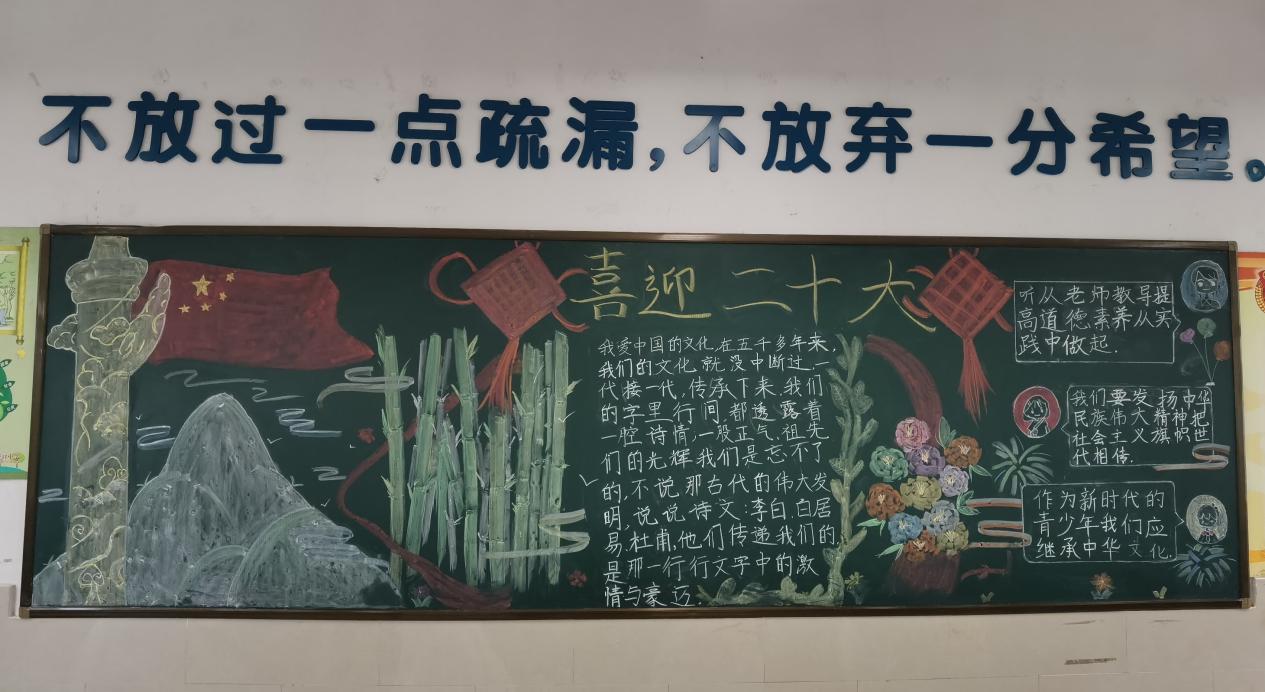 不放过一点疏漏，不放弃一分希望。
喜迎二十大
我爱中国的文化，在五千多年来，
我们的文化就没中断过，一
代接一代，传承下来，我们
的字里行间，都透露着
一腔诗情，一股正气，祖先
们的光辉我们是忘不了
的，不说那古代的伟大发
明，说说诗文：李白，白居
易，杜甫，他们传递我们的，
是那一行行文字中的激
情与豪迈．
听从老师教导提
高道德素养从实
践中做起．
我们要发扬中华
民族伟大精神把
社会主义旗帜世
代相传．
作为新时代的
青少年我们应
继承中华文化．